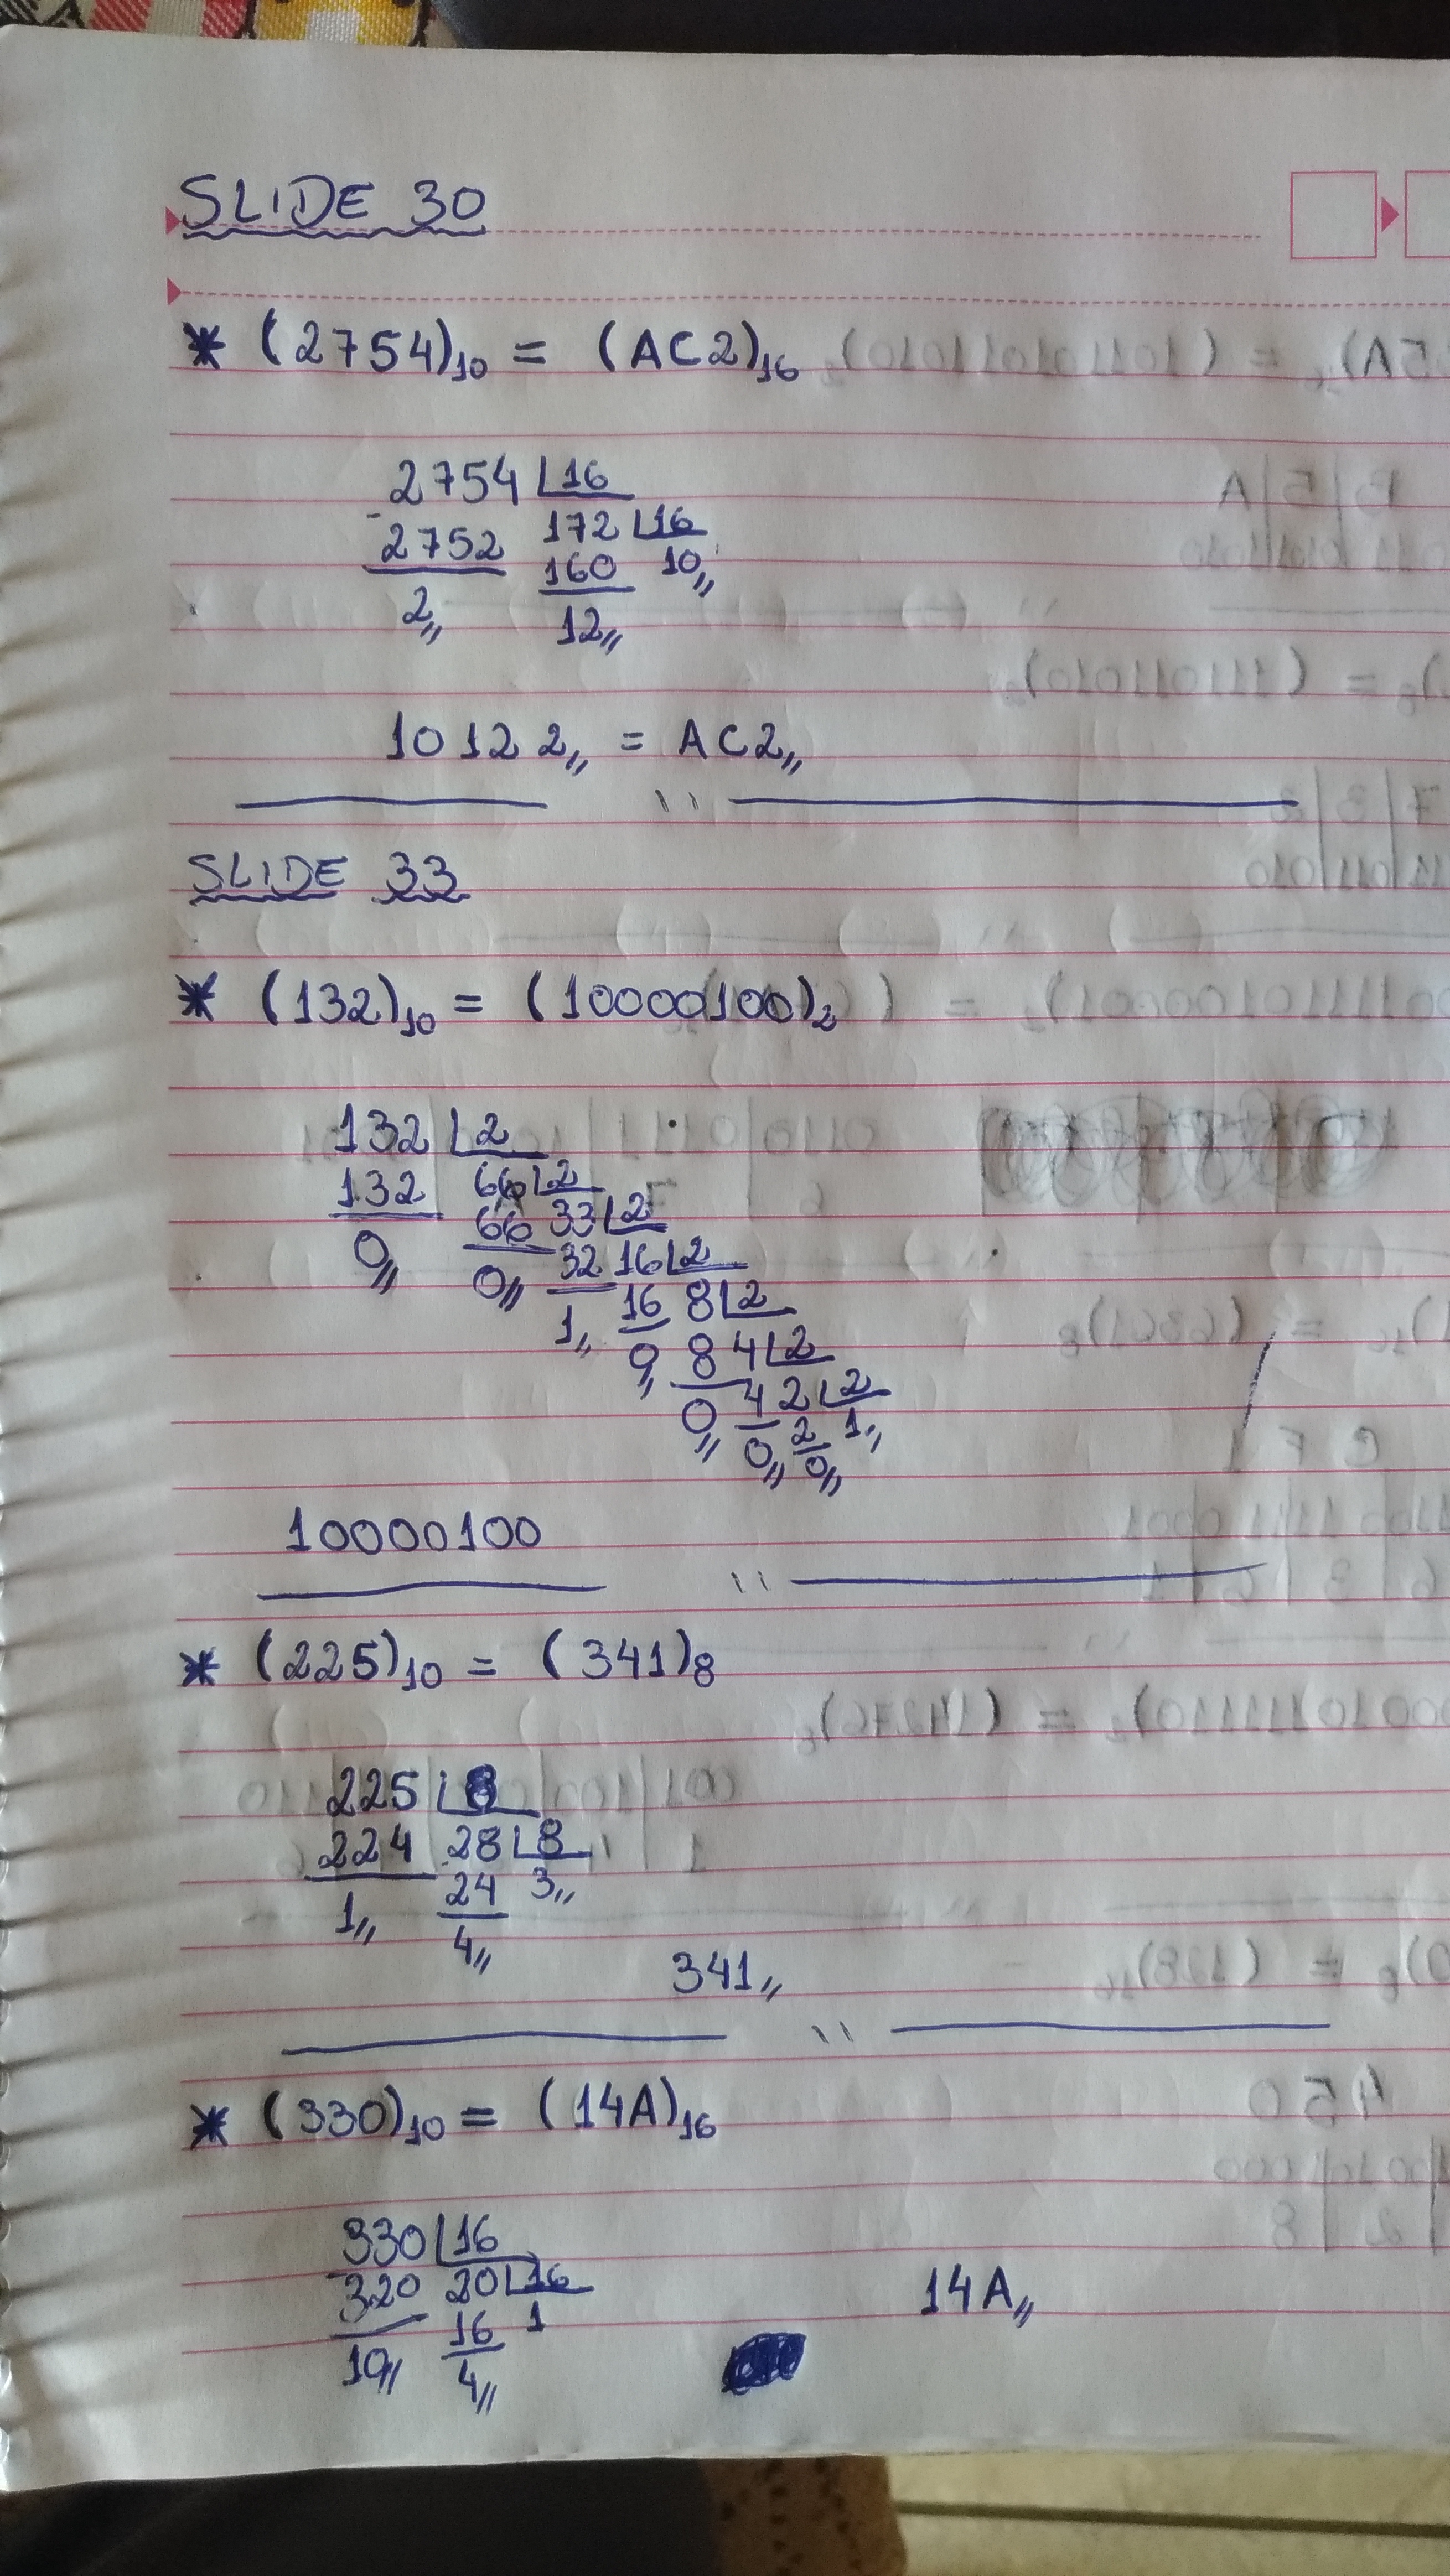 SLIDE 30
* (2754)10 = (AC2)16
2754 16
- 2752 172 16
2 160 10,,
12,,
10 12 2,, = AC2,,
SLIDE 33
* (132)10 = (10000100)2
132 2
132 66 2
0,, 66 33 2
0,, 32 16 2
1,, 16 8 2
0,, 8 4 2
0,, 4 2 2
0,, 2 1,,
0,,
10000100
* (225)10 = (341)8
225 8
224 28 8
1,, 24 3,,
4,,
341,,
* (330)10 = (14A)16
330 16
320 20 16
10,, 16 1
4,,
14A,,